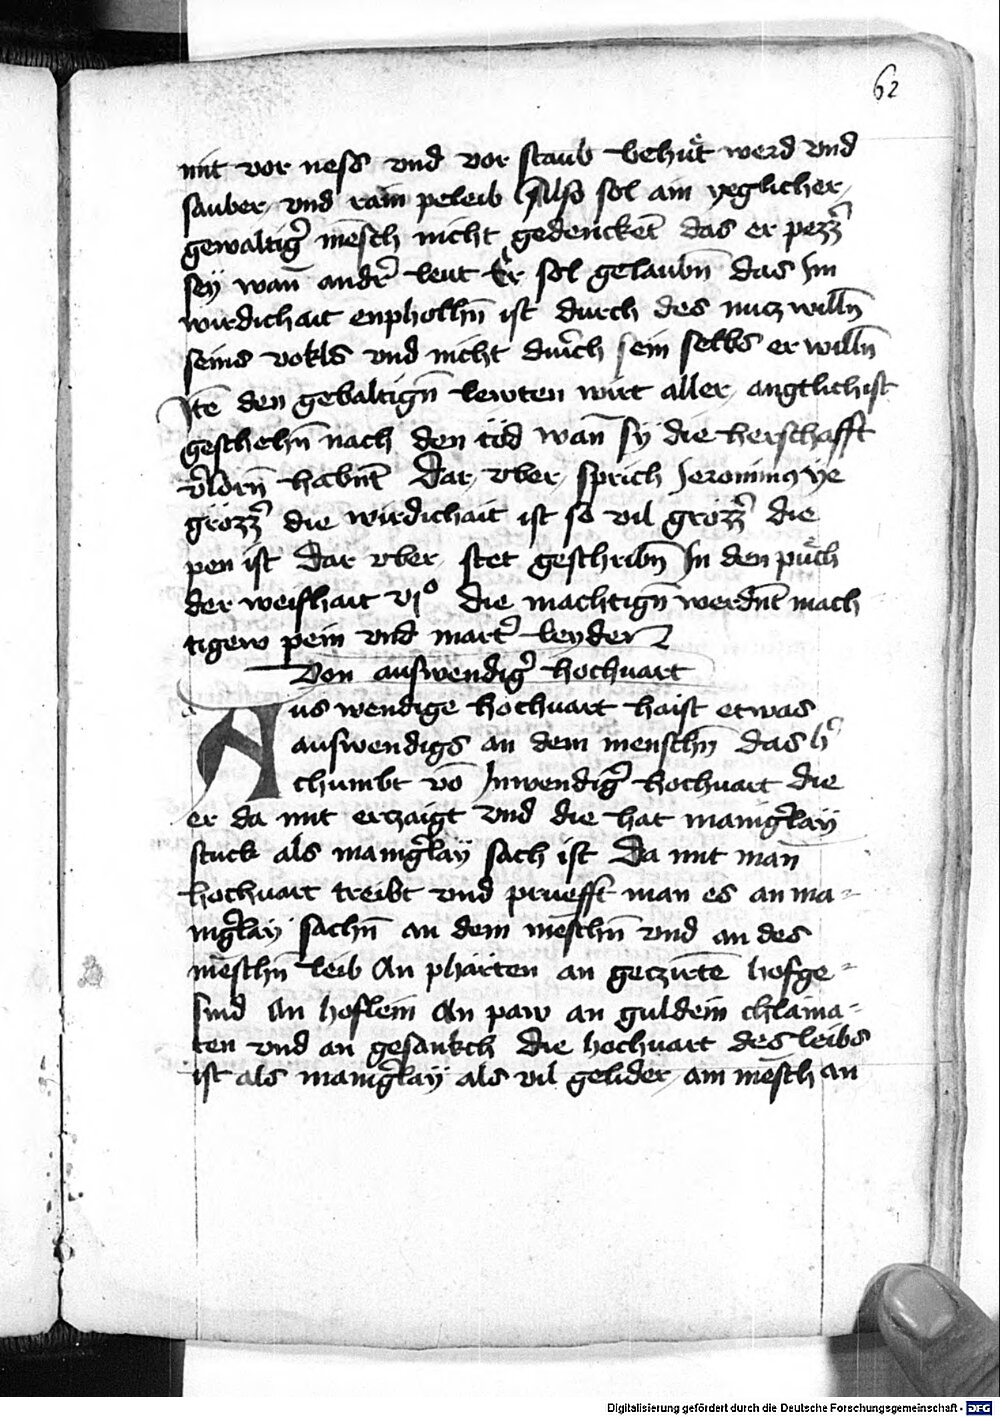 62
mit vor ness vnd vor staub behuͤt werd vnd
sauber vnd rain peleib Also sol ain yeglicher
gewaltig̉ me̅sch nicht gedencket̅ das er pezz̉
sey wan̅ andr̉ leut Er sol gelaubn̅ das Im
wirdichait enpholhn̅ ist durch des nucz willn̅
seins vokls vnd nicht durch sein selbs er willn̅
Ite̅ den gebaltign̅ lewten wirt aller angtlichist
geschehn̅ nach den töd wan̅ sy die herschafft
v̉lorn̅ habnt̅ Dar vber sprich Jeronimꝯ ye
grözz̉ die wirdichait ist so vil grözz̉ die
pen ist Dar vber stet geschribn̅ In den puͤch
der weishait vjº die machtign̅ werdnt̅ mach
tigew pein vnd mart̉ leyden
Von auswendig̉ hochuart
a
Aus wendige hochuart haist etwas
auswendigs an dem menschn̅ das h̉
chumbt vo̅ Inwendig̉ hochuart die
er da mit erczaigt vnd die hat manig̉lay
stuck als manig̉lay sach ist Da mit man
hochuart treibt vnd pruefft man es an ma=
nig̉lay sachn̅ an dem me̅schn̅ vnd an des
me̅schn̅ leib An phärten an geczirte̅ hofge=
sind An hoflein An paw an guldein chlaina=
ten vnd an gesankch die hochuart des leibs
ist als manig̉lay als vil gelider ain me̅sch an
Digitalisierung gefördert durch die Deutsche Forschungsgemeinschaft - DFG